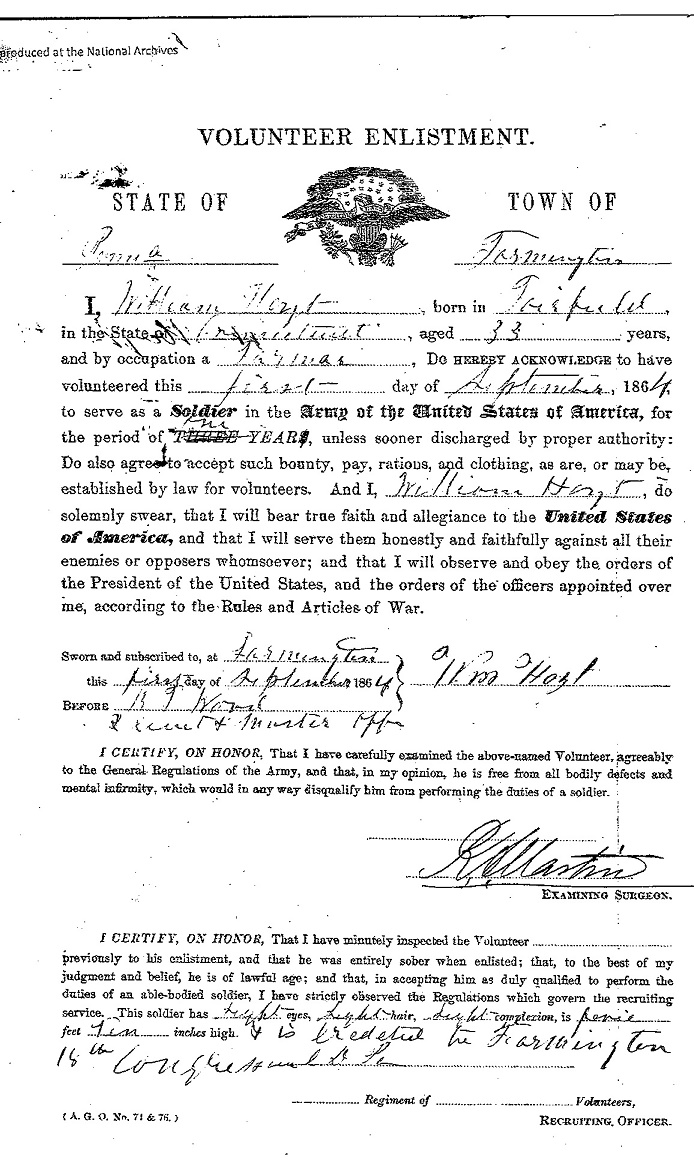 produced at the National Archives
VOLUNTEER ENLISTMENT.
STATE OF TOWN OF
Penna Farmington
I, William Hoyt, born in Fairfield,
in the State of Connecticut, aged 33 years,
and by occupation a Farmar, Do HEREBY ACKNOWLEDGE to have
volunteered this first day of September, 1864,
to serve as a Soldier in the Army of the United States of America, for
the period of THREE one YEARS, unless sooner discharged by proper authority:
Do also agree to accept such bounty, pay, rations, and clothing, as are, or may be,
established by law for volunteers. And I, William Hoyt, do
solemnly swear, that I will bear true faith and allegiance to the United States
of America, and that I will serve them honestly and faithfully against all their
enemies or opposers whomsoever; and that I will observe and obey the orders of
the President of the United States, and the orders of the officers appointed over
me, according to the Rules and Articles of War.
Sworn and subscribed to, at Farmington
this first day of September 1864 Wm Hoyt
BEFORE
Muster
I CERTIFY, ON HONOR, That I have carefully examined the above-named Volunteer, agreeably
to the General Regulations of the Army, and that, in my opinion, he is free from all bodily defects and
mental infirmity, which would in any way disqualify him from performing the duties of a soldier.
Martin
EXAMINING SURGEON.
I CERTIFY, ON HONOR, That I have minutely inspected the Volunteer
previously to his enlistment, and that he was entirely sober when enlisted; that, to the best of my
judgment and belief, he is of lawful age; and that, in accepting him as duly qualified to perform the
duties of an able-bodied soldier, I have strictly observed the Regulations which govern the recruiting
service. This soldier has Light eyes, Light hair, Light complexion, is
feet Ten inches high. & is Credeted to Farmington
18th Congressional
Regiment of Volunteers,
( A. G. O. No. 71 & 76. ) RECRUITING OFFICER.